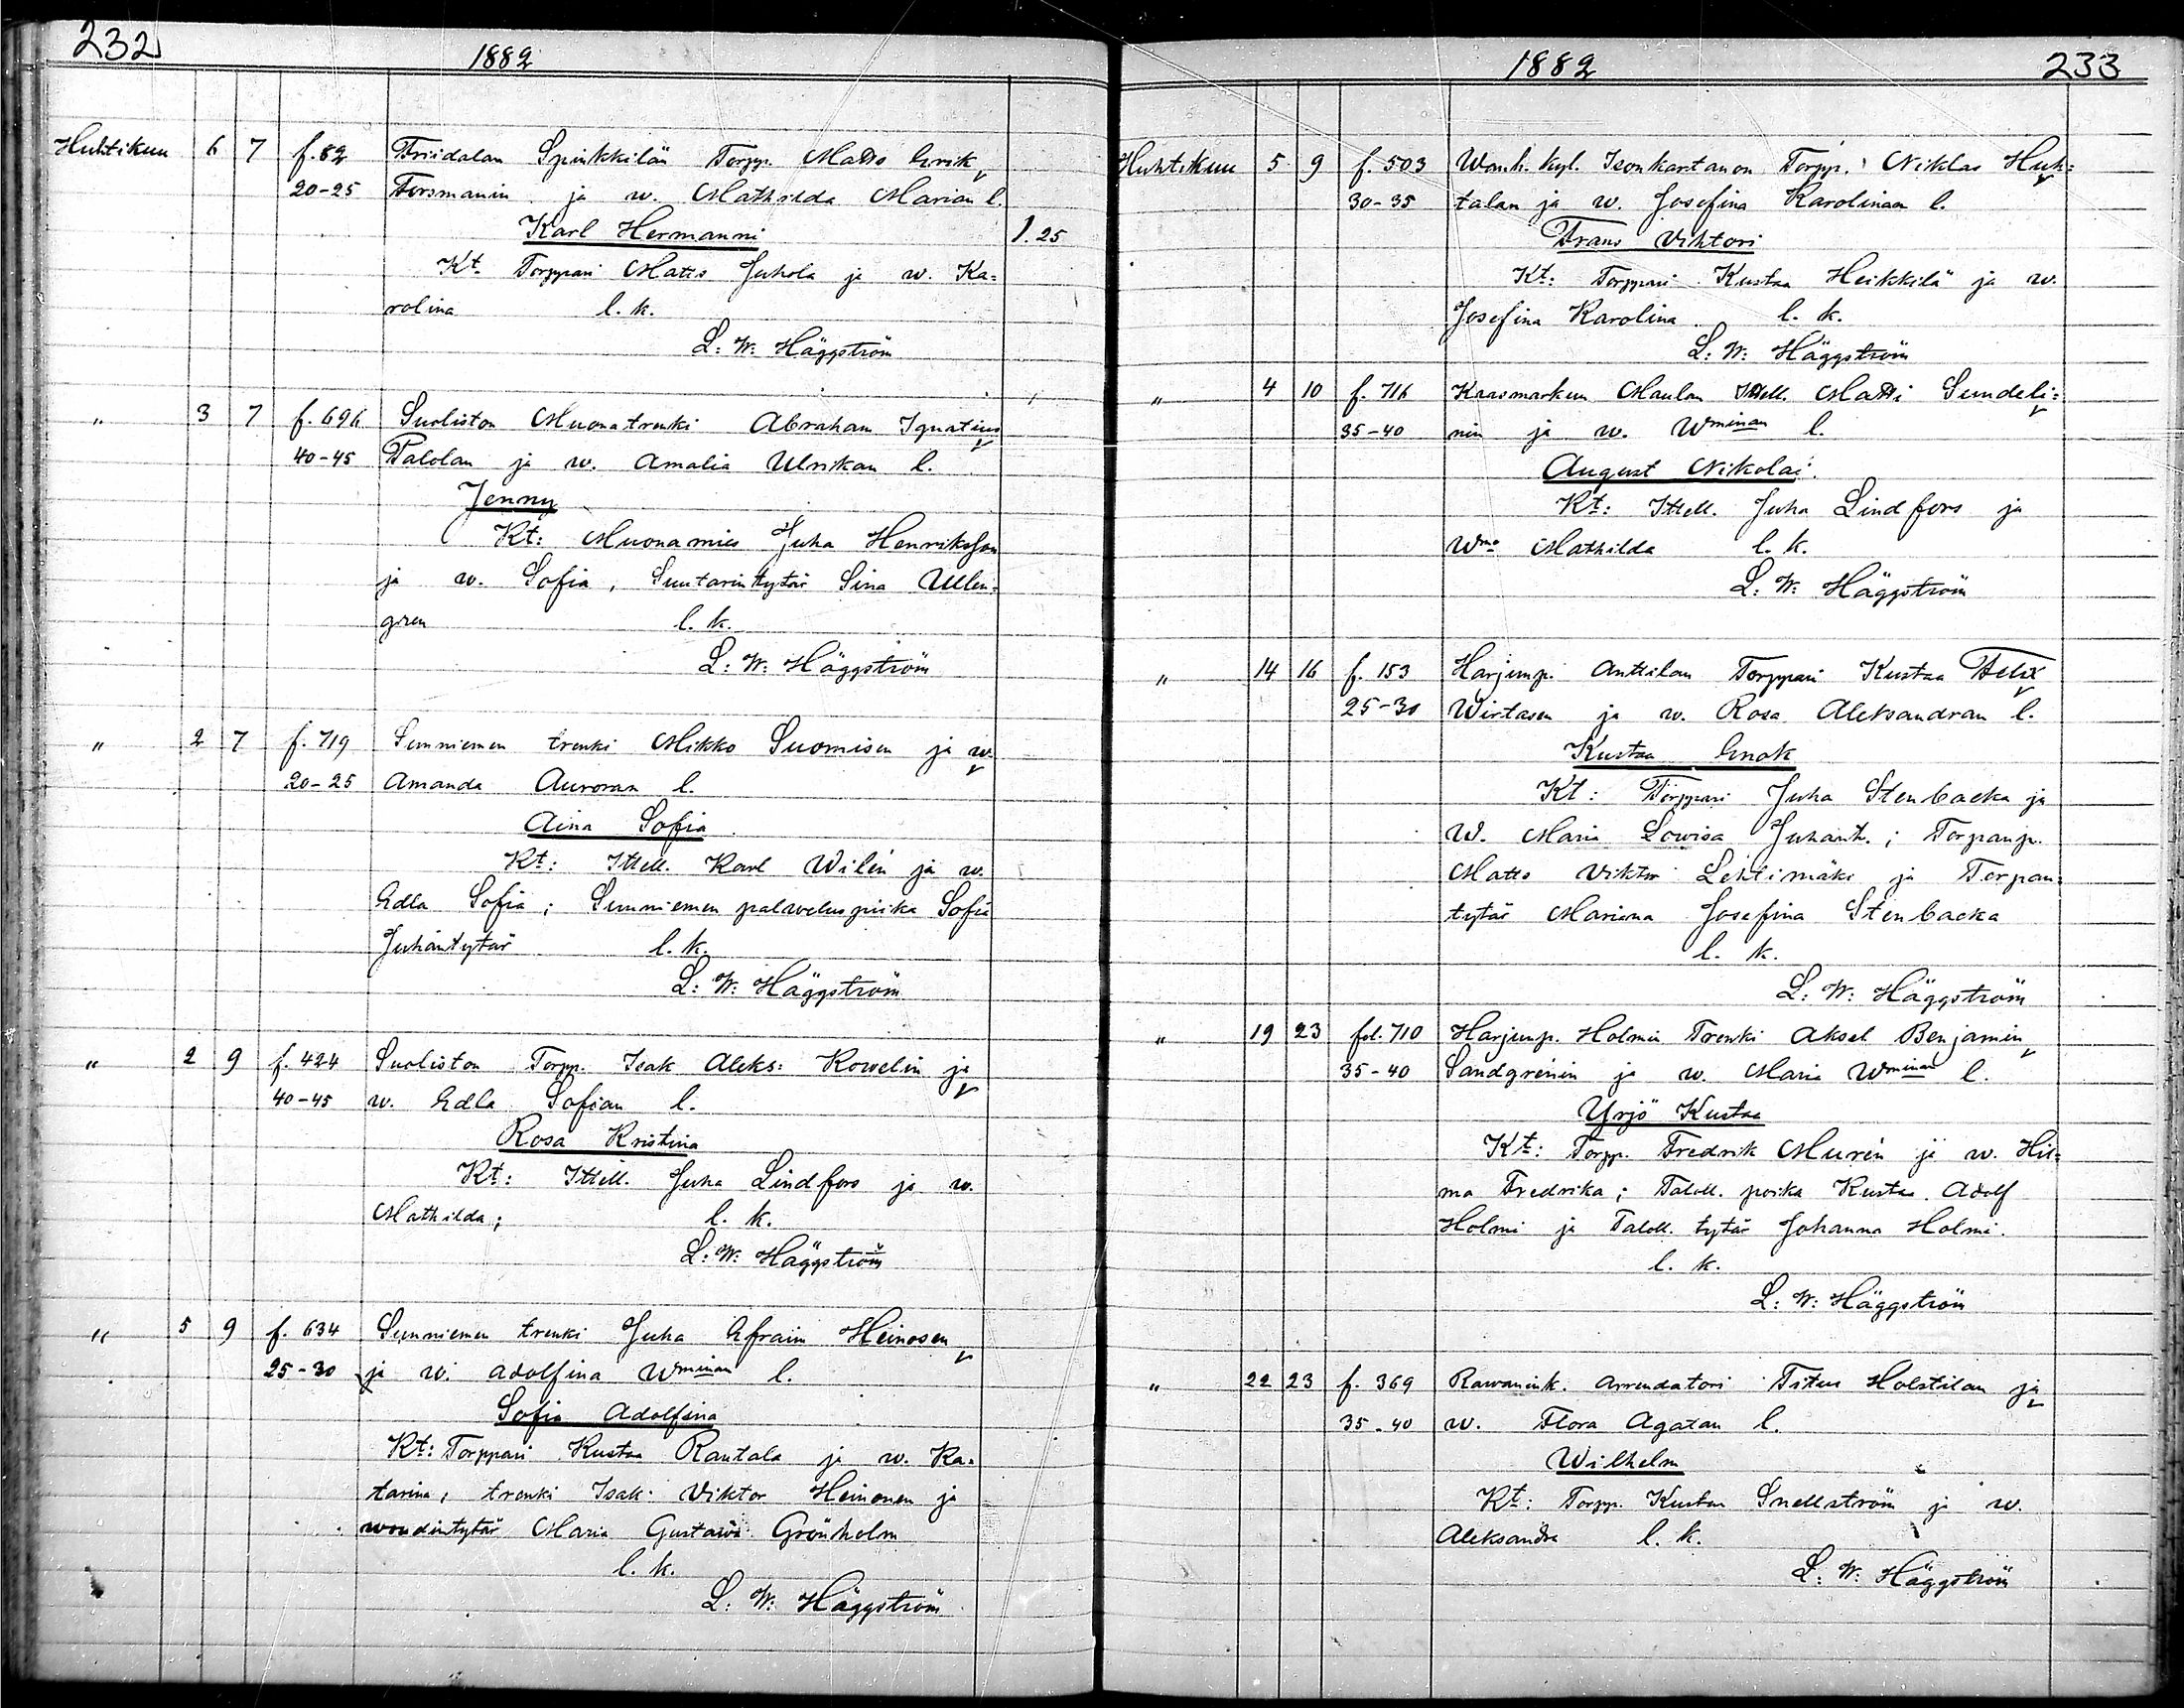 232
1882
Huhtikuu 6 7 f. 82 Friidalan Spinkkilän Torpp. Matts Erik
20-25 Forsmanin ja w. Mathilda Marian l.
Karl Hermanni 1.25
Kt. Torppari Matts Juhola ja w. Ka=
rolina l. k.
L: W: Häggström
" 3 7 f. 696 Suoliston Muonatrenki Abraham Ignatius
40-45 Palolan ja w. Amalia Ulrikan l.
Jenny
Kt: Muonamies Juha Henriksson
ja w. Sofia, Suutarintytär Sina Ullen=
gren l. k.
L: W: Häggström
" 2 7 f. 719 Sunniemen trenki Mikko Suomisen ja w.
20-25 Amanda Auroran l.
Aina Sofia
Kt: Ittell. Karl Wilén ja w.
Edla Sofia; Sunniemen palweluspiika Sofia
Juhantytär l. k.
L: W: Häggström
" 2 9 f. 424 Suoliston Torpp. Isak Aleks: Kowelin ja
40-45 w. Edla Sofian l.
Rosa Kristina
Kt: Ittell. Juha Lindfors ja w.
Mathilda; l. k.
L: W: Häggström
" 5 9 f. 634 Sunniemen trenki Juha Efraim Heinosen
25-30 ja w. Adolfina Wminan l.
Sofia Adolfina
Kt: Torppari Kustaa Rautala ja w. Ka=
tarina, trenki Isak Viktor Heinonen ja
woudintytär Maria Gustawa Grönholm
l. k.
L: W: Häggström
1882
233
Huhtikuu 5 9 f. 503 Wanh. kyl. Isonkartanon Torpp. Niklas Huh=
30-35 talan ja w. Josefina Karolinan l.
Frans Vihtori
Kt: Torppari Kustaa Heikkilä ja w.
Josefina Karolina l. k.
L: W: Häggström
" 4 10 f. 716 Kaasmarkun Maulan Ittell. Matti Sundeli=
35-40 nin ja w. Wminan l.
August Nikolai
Kt: Ittell. Juha Lindfors ja
Wmo Mathilda l. k.
L: W: Häggström
" 14 16 f. 153 Harjunp. Anttilan Torppari Kustaa Felix
25-30 Wirtasen ja w. Rosa Aleksandran l.
Kustaa Enok
Kt: Torppari Juha Stenbacka ja
W. Maria Lowisa Juhant.; Torpanp.
Matts Viktor Lehtimäki ja Torpan=
tytär Mariana Josefina Stenbacka
l. k.
L: W: Häggström
" 19 23 fol. 710 Harjunp. Holmin Trenki Aksel Benjamin
35-40 Sandgrénin ja w. Maria Wminan l.
Yrjö Kustaa
Kt: Torpp. Fredrik Murén ja w. Hil=
ma Fredrika; Taloll. poika Kustaa Adolf
Holmi ja Taloll. tytär Johanna Holmi.
l. k.
L: W: Häggström
" 22 23 f. 369 Rawanink. Arrendatori Titus Holstilan ja
35-40 w. Flora Agatan l.
Wilhelm
Kt: Torpp. Kustaa Snellström ja w.
Aleksandra l. k.
L: W: Häggström